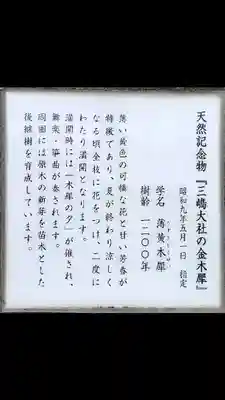 天然記念物『三嶋大社の金木犀』
昭和九年五月一日 指定
学名 薄黄木犀
樹齢 一二〇〇年
薄い黄色の可憐な花と甘い芳香が
特徴であり、夏が終わり涼しく
なる頃全枝に花をつけ、二度に
わたり満開となります。
満開時には「木犀の夕」が催され、
舞楽・箏曲が奏されます。
周囲には原木の新芽を苗木とした
後継樹を育成しています。